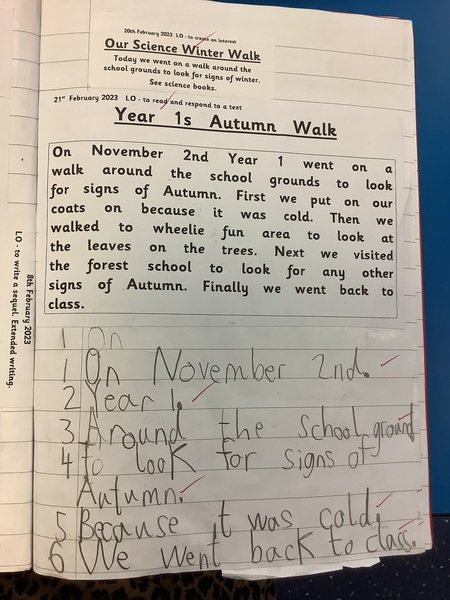 20th February 2023 LO - to create an interest
Our Science Winter Walk
Today we went on a walk around the
school grounds to look for signs of winter.
See science books.
21st February 2023 LO - to read and respond to a text
Year 1s Autumn Walk
On November 2nd Year 1 went on a
walk around the school grounds to look
for signs of Autumn. First we put on our
coats on because it was cold. Then we
walked to wheelie fun area to look at
the leaves on the trees. Next we visited
the forest school to look for any other
signs of Autumn. Finally we went back to
class.
8th February 2023
LO - to write a sequel. Extended writing.
1 On
1 On November 2nd.
2 Year 1.
3 Around the school ground
4 to look for signs of
Autumn.
5 Because it was cold.
6 We went back to class.